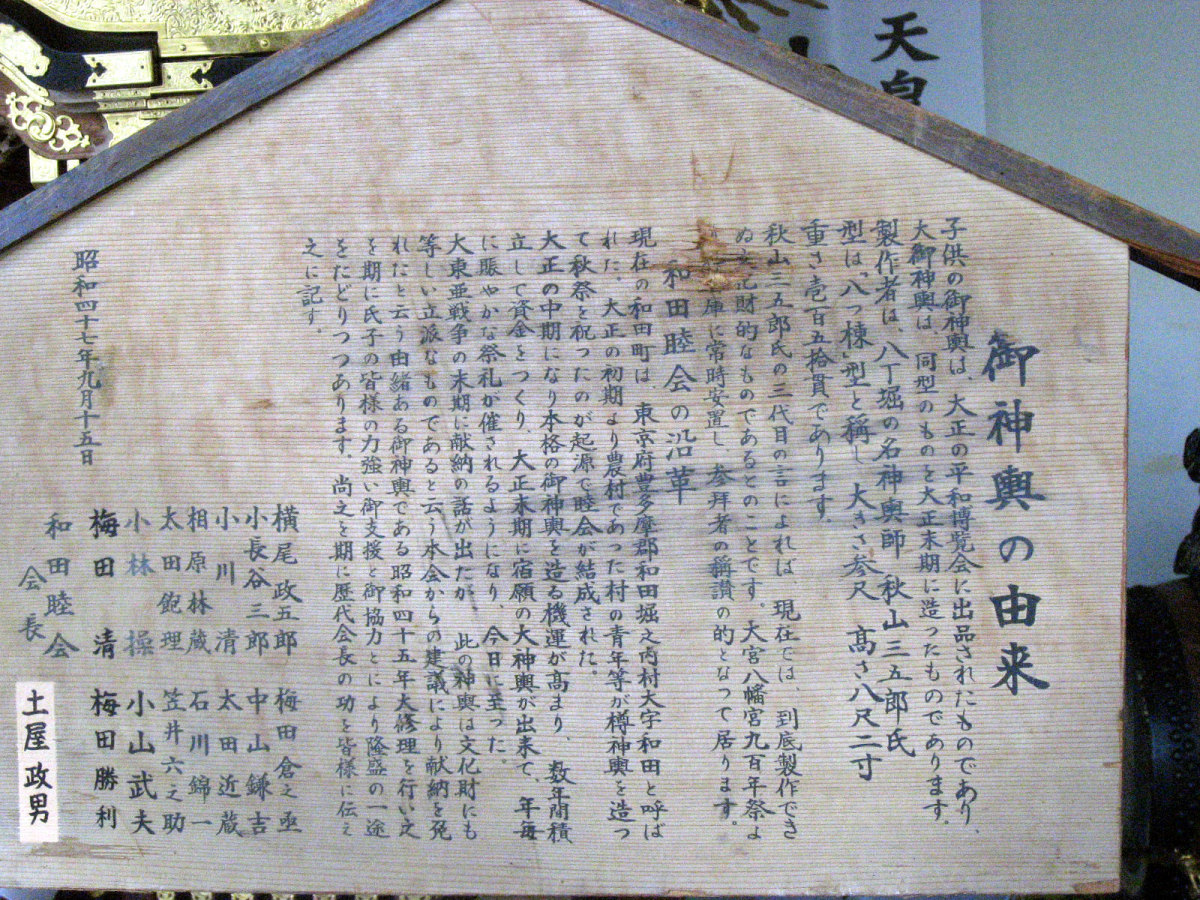 御神輿の由来
子供の御神輿は、大正の平和博覧会に出品されたものであり、
大御神輿は、同型のものを大正末期に造ったものであります。
製作者は、八丁堀の名神輿師 秋山三五郎氏
型は「八つ棟」型と稱し 大きさ参尺 高さ八尺二寸
重さ壱百五拾貫であります。
秋山三五郎氏の三代目の言によれば 現在では、到底製作でき
財的なものであるとのことです。大宮八幡宮九百年祭よ
庫に常時安置し、参拜者の稱讃の的となって居ります。
和田睦会の沿革
現在の和田町は 東京府豊多摩郡和田堀之内村大字和田と呼ば
れた。大正の初期より農村であった村の青年等が樽神輿を造っ
て秋祭を祝ったのが起源で睦会が結成された。
大正の中期になり本格の御神輿を造る機運が高まり、数年間積
立して資金をつくり、大正末期に宿願の大神輿が出来て、年毎
に賑やかな祭礼が催されるようになり、今日に至った。
大東亜戦争の末期に献納の話が出たが、此の神輿は文化財にも
等しい立派なものであると云う本会からの建議により献納を発
れたと云う由緒ある御神輿である昭和四十五年大修理を行い之
を期に氏子の皆様の力強い御支援と御協力とにより隆盛の一途
をたどりつつあります。尚之を期に歴代会長の功を皆様に伝え
之に記す。
昭和四十七年九月十五日
横尾政五郎 梅田倉之亟
小長谷三郎 中山鎌吉
小川清 太田近蔵
相原林蔵 石川錦一
太田鉋理 笠井六之助
小林操 小山武夫
梅田清 梅田勝利
和田睦会
会長
土屋政男
天皇